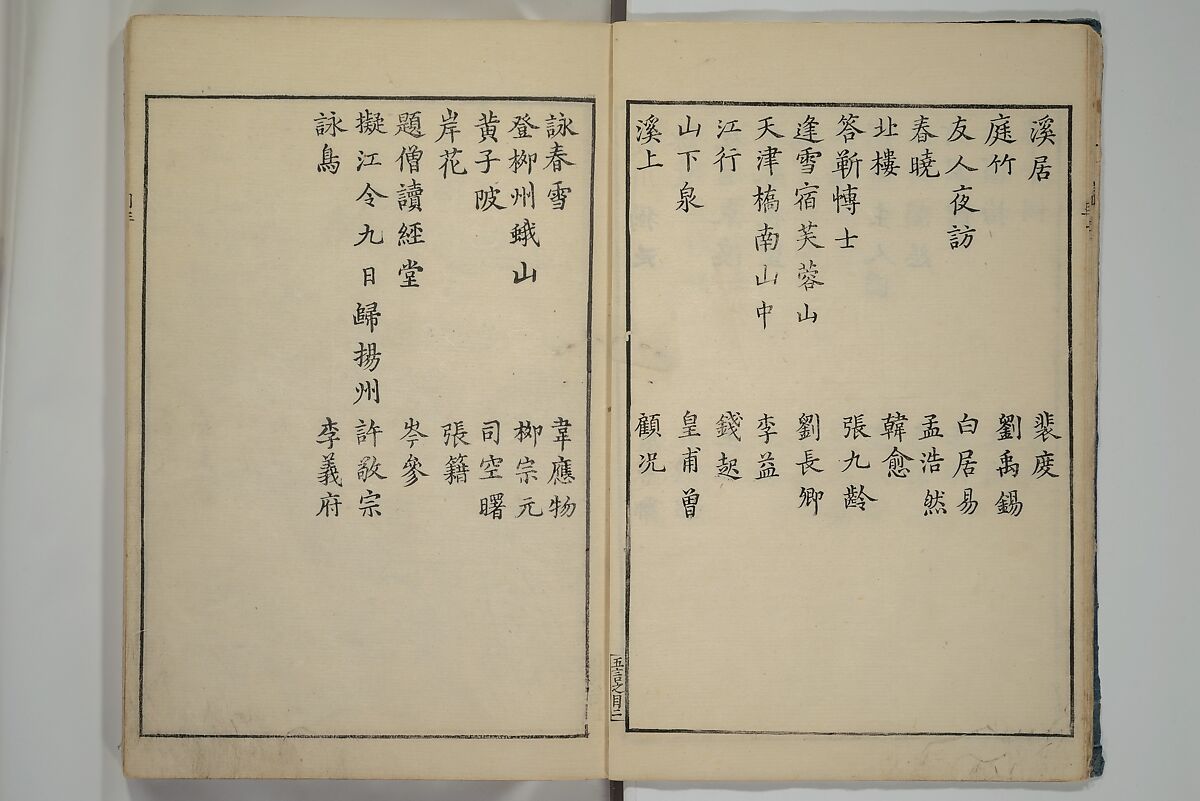 溪居 裴度
庭竹 劉禹錫
友人夜訪 白居易
春曉 孟浩然
北樓 韓愈
答靳博士 張九齡
逢雪宿芙蓉山 劉長卿
天津橋南山中 李益
江行 錢起
山下泉 皇甫曾
溪上 顧況
五言之目二
詠春雪 韋應物
登柳州蛾山 柳宗元
黄子陂 司空曙
岸花 張籍
題僧讀經堂 岑參
擬江令九日歸揚州 許敬宗
詠鳥 李義府